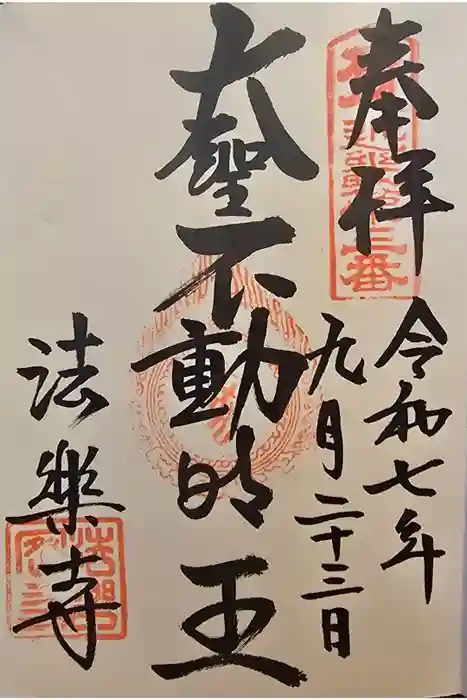 奉拝
令和七年
九月二十三日
大聖不動明王
法樂寺